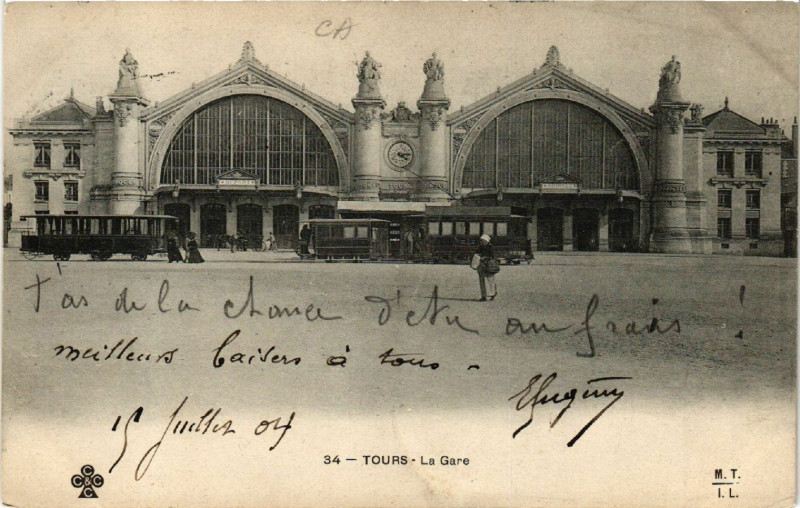 CA
t'as de la chance d'être au frais !
meilleurs baisers à tous -
Eugény
15 Juillet 04
34 — TOURS - La Gare
CCCC
M. T.
I. L.